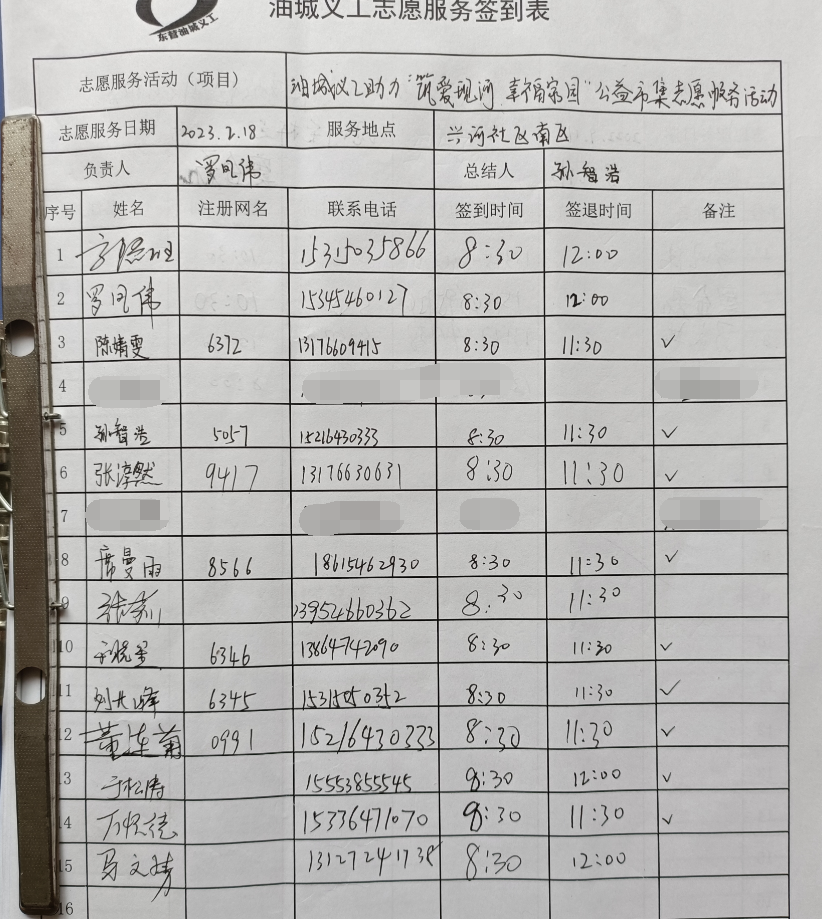 东营油城义工
油城义工志愿服务签到表
志愿服务活动（项目） 油城义工助力“筑爱现河 幸福家园”公益市集志愿服务活动
志愿服务日期 2023.2.18 服务地点 兴河社区南区
负责人 罗凤伟 总结人 孙智浩
序号 姓名 注册网名 联系电话 签到时间 签退时间 备注
1 15315035866 8:30 12:00
2 罗凤伟 15345460127 8:30 12:00
3 陈婧雯 6372 13176609415 8:30 11:30 ✓
4
5 孙智浩 5057 15216430333 8:30 11:30 ✓
6 张淳然 9417 13176630631 8:30 11:30 ✓
7
8 席曼雨 8566 18615462930 8:30 11:30 ✓
9 13954660362 8:30 11:30
10 6346 13864742090 8:30 11:30 ✓
11 6345 15315050352 8:30 11:30 ✓
12 董连菊 0991 15216430333 8:30 11:30 ✓
13 于松涛 15553855545 8:30 12:00 ✓
14 15336471070 8:30 11:30 ✓
15 马文婧 13127241738 8:30 12:00
16